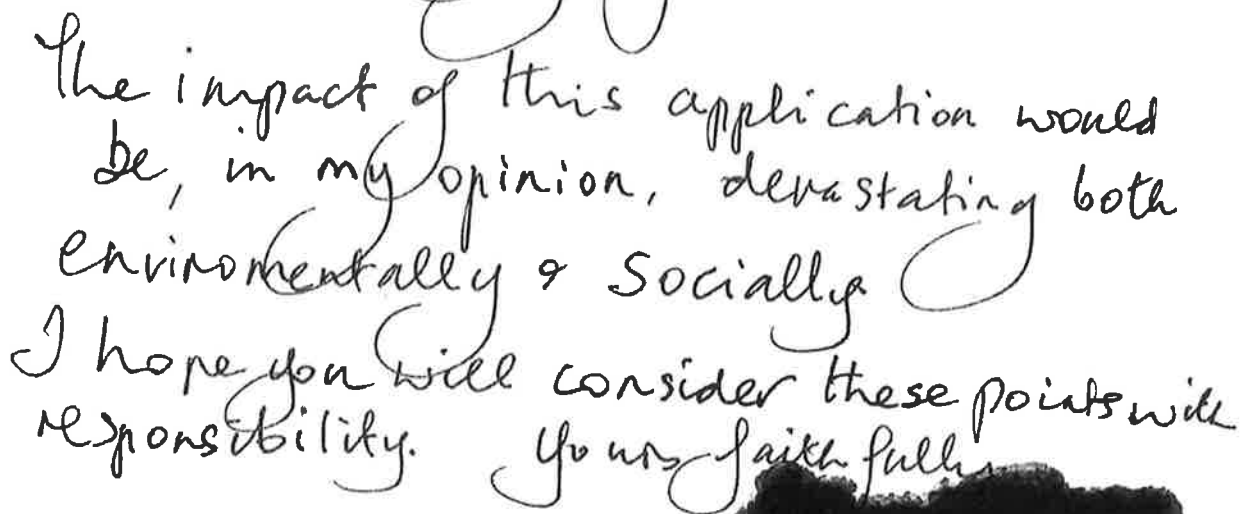 The impact of this application would
be, in my opinion, devastating both
enviromentally & Socially.
I hope you will consider these points with
responsibility. Yours faithfully